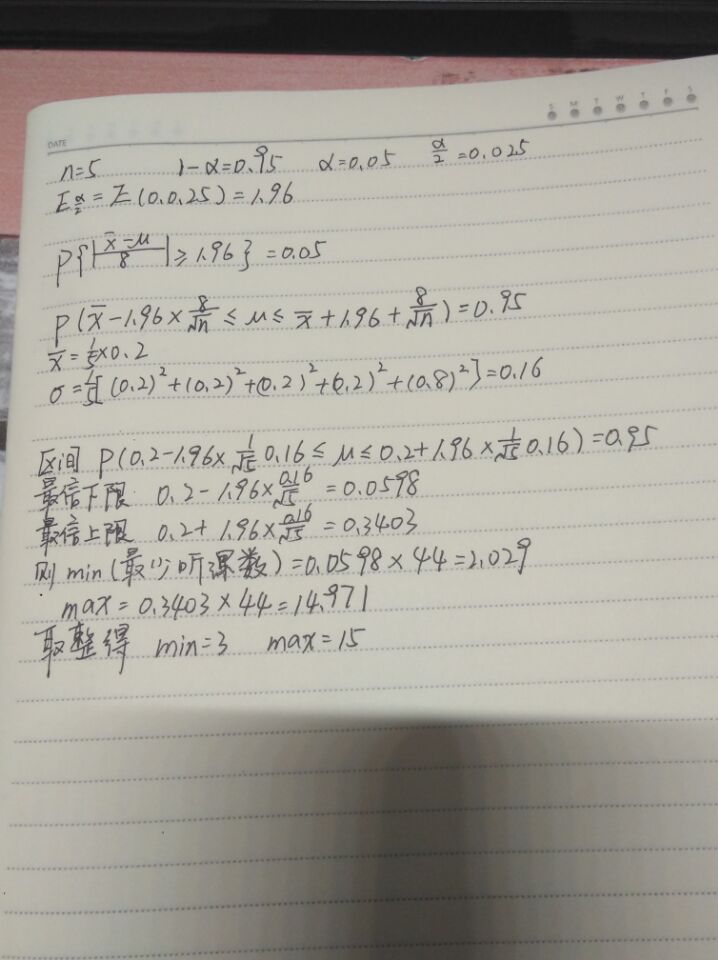 S M T W T F S
DATE
n=5 1-α=0.95 α=0.05 α/2=0.025
Z α/2 = Z(0.0.25)=1.96
P{|x̄-μ/8|≥1.96}=0.05
P(x̄-1.96×8/√n≤μ≤x̄+1.96+8/√n)=0.95
x̄=1/5×0.2
σ=1/5[(0.2)²+(0.2)²+(0.2)²+(0.2)²+(0.8)²]=0.16
区间 P(0.2-1.96×1/√5 0.16≤μ≤0.2+1.96×1/√5 0.16)=0.95
最信下限 0.2-1.96×0.16/√5=0.0598
最信上限 0.2+1.96×0.16/√5=0.3403
则 min(最少听课数)=0.0598×44=2.029
max=0.3403×44=14.971
取整得 min=3 max=15